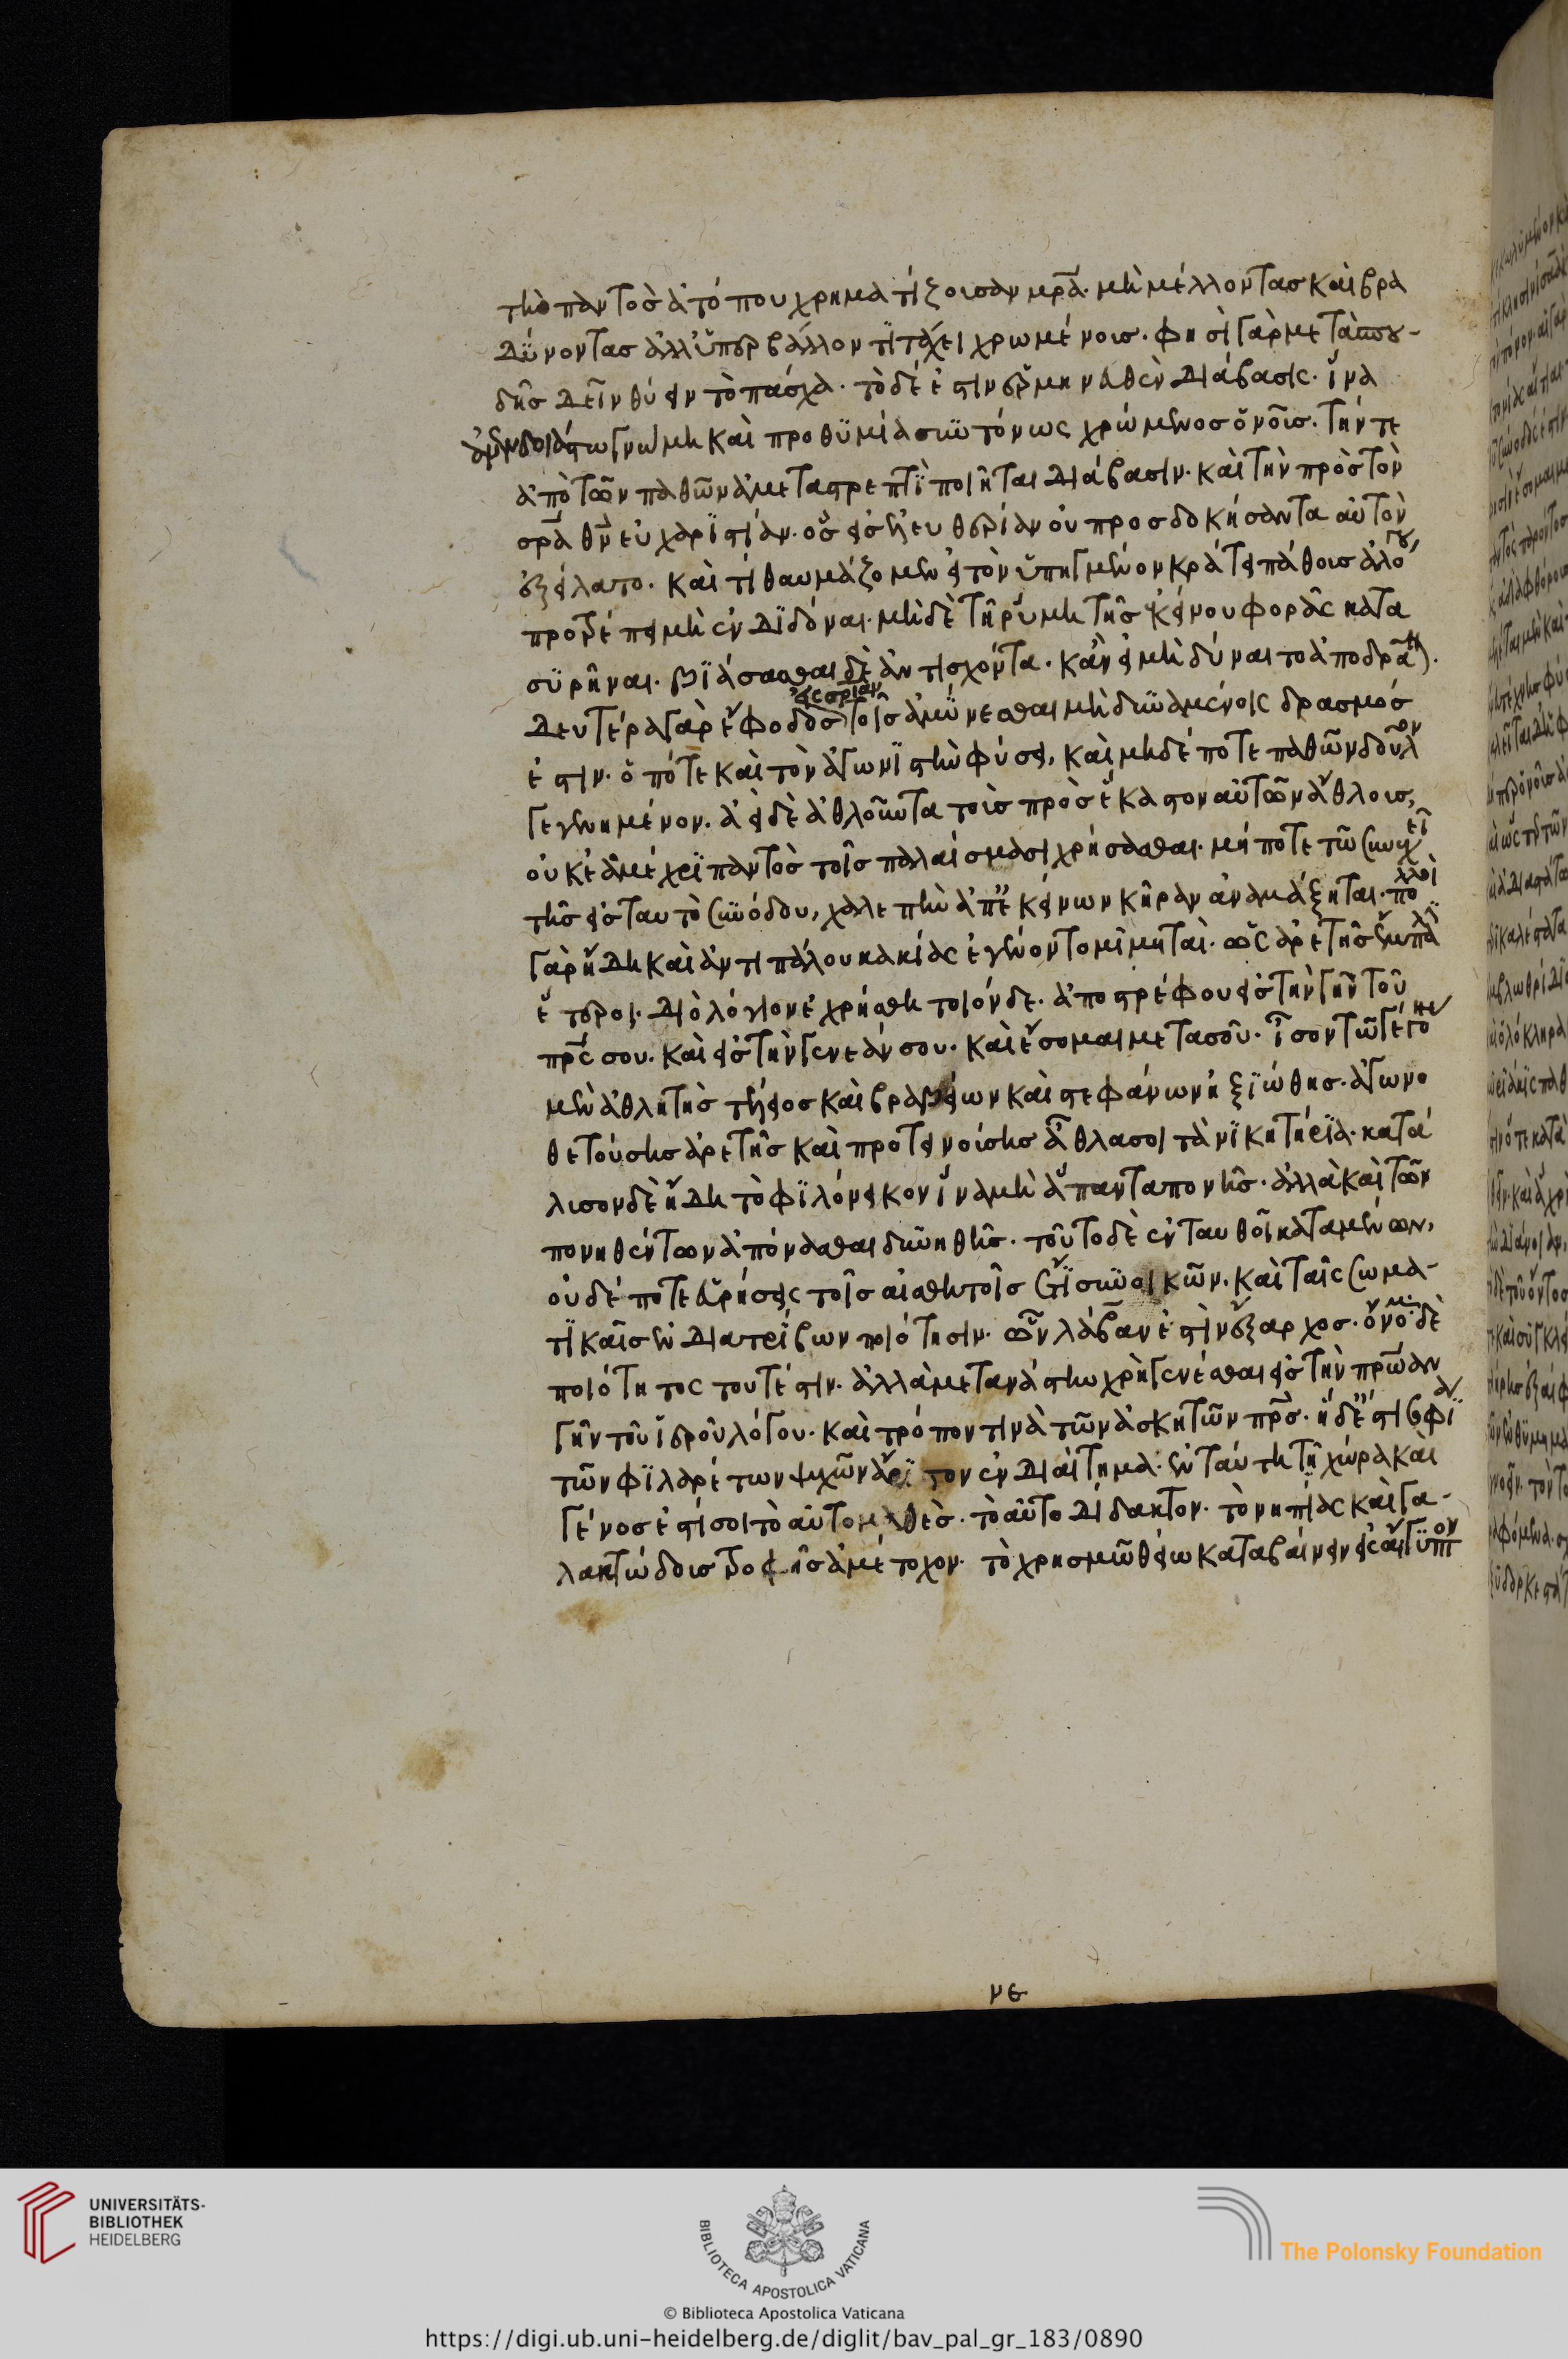 τὴν παντὸς ἀτόπου χρηματίζουσαν μρα. μὴ μέλλοντας καὶ βρα
δύνοντας ἀλλ' ὑπερβάλλοντι τάχει χρωμένους. φησὶ γὰρ μετὰ σπου-
δῆς δεῖν θύειν τὸ πάσχα. τὸ δέ ἐστιν ἑρμηνευθὲν διάβασις. ἵνα
ἀνενδοιάστω γνώμη καὶ προθυμία συντόνως χρώμενος ὁ νοῦς. τήν τε
ἀπὸ τῶν παθῶν ἀμεταστρεπτὶ ποιῆται διάβασιν. καὶ τὴν πρὸς τὸν
σρα θν εὐχαριστίαν. ὃς εἰς ἐλευθερίαν οὐ προσδοκήσαντα αὐτὸν
ἐξείλατο. καὶ τί θαυμάζομεν εἰ τὸν ὑπηγμένον κράτει πάθους ἀλόγου
προτρέπει μὴ ἐνδιδόναι. μὴ δὲ τῇ ῥύμη τῆς ἐκείνου φορᾶς κατα
συρῆναι. βιάσασθαι δὲ ἀντισχόντα. κἂν εἰ μὴ δύναιτο ἀποδρᾶναι.
δευτέρα γὰρ ἔφοδος εἰς σριαν τοῖς ἀμύνεσθαι μὴ δυναμένοις δρασμός
ἐστιν. ὁπότε καὶ τὸν ἀγωνιστὴν φύσει, καὶ μηδέποτε παθῶν δοῦλον
γεγενημένον. ἀεὶ δὲ ἀθλοῦντα τοὺς πρὸς ἕκαστον αὐτῶν ἄθλους,
οὐκ ἐᾶ μέχρι παντὸς τοῖς παλαίσμασι χρήσασθαι. μή ποτε τῶ συνεχεῖ
τῆς εἰς ταυτὸ συνόδου, χαλεπὴν ἀπ' ἐκείνων κῆραν ἀναμάξηται. πολλοὶ
γὰρ ἤδη καὶ ἀντιπάλου κακίας ἐγένοντο μιμηταὶ. ὡς ἀρετῆς ἔμπαλιν
ἕτεροι. διὸ λόγιον ἐχρήσθη τοιόνδε. ἀποστρέφου εἰς τὴν γῆν τοῦ
πρς σου. καὶ εἰς τὴν γενεάν σου. καὶ ἔσομαι μετὰ σοῦ. ἴσον τῶ γέγονας
μὲν ἀθλητὴς τέλειος καὶ βραβείων καὶ στεφάνων ἠξιώθης. ἀγωνο
θετούσης ἀρετῆς καὶ προτεινούσης ἆθλά σοι τὰ νικητήρια. κατά
λυσον δὲ ἤδη τὸ φιλόνεικον ἵνα μὴ ἅπαντα πονῆς. ἀλλὰ καὶ τῶν
πονηθέντων ἀπόνασθαι δυνηθῆς. τοῦτο δὲ ἐνταυθοῖ καταμένων,
οὐδέποτε εὑρήσεις τοῖς αἰσθητοῖς ἔτι συνοικῶν. καὶ ταῖς σωμα-
τικαῖς ἐνδιατρίβων ποιότησιν. ὧν λάβαν ἐστὶν ἔξαρχος. ὄνομα δὲ
ποιότητος τουτέστιν. ἀλλὰ μετανάστην χρὴ γενέσθαι εἰς τὴν πρώαν
γῆν τοῦ ἱεροῦ λόγου. καὶ τρόπον τινὰ τῶν ἀσκητῶν πρς. ἡ δ' ἐστὶ σοφία
τῶν φιλαρέτων ψυχῶν ἄριστον ἐνδιαίτημα. ἐν ταύτη τῆ χώρα καὶ
γένος ἐστί σοι τὸ αὐτομαθὲς. τὸ αὐτοδίδακτον. τὸ νηπίας καὶ γα-
λακτώδους τροφῆς ἀμέτοχον. τὸ χρησμῶ θείω καταβαίνειν εἰς αἴγυπτον
νε
UNIVERSITÄTS-
BIBLIOTHEK
HEIDELBERG
BIBLIOTECA APOSTOLICA VATICANA
The Polonsky Foundation
© Biblioteca Apostolica Vaticana
https://digi.ub.uni-heidelberg.de/diglit/bav_pal_gr_183/0890